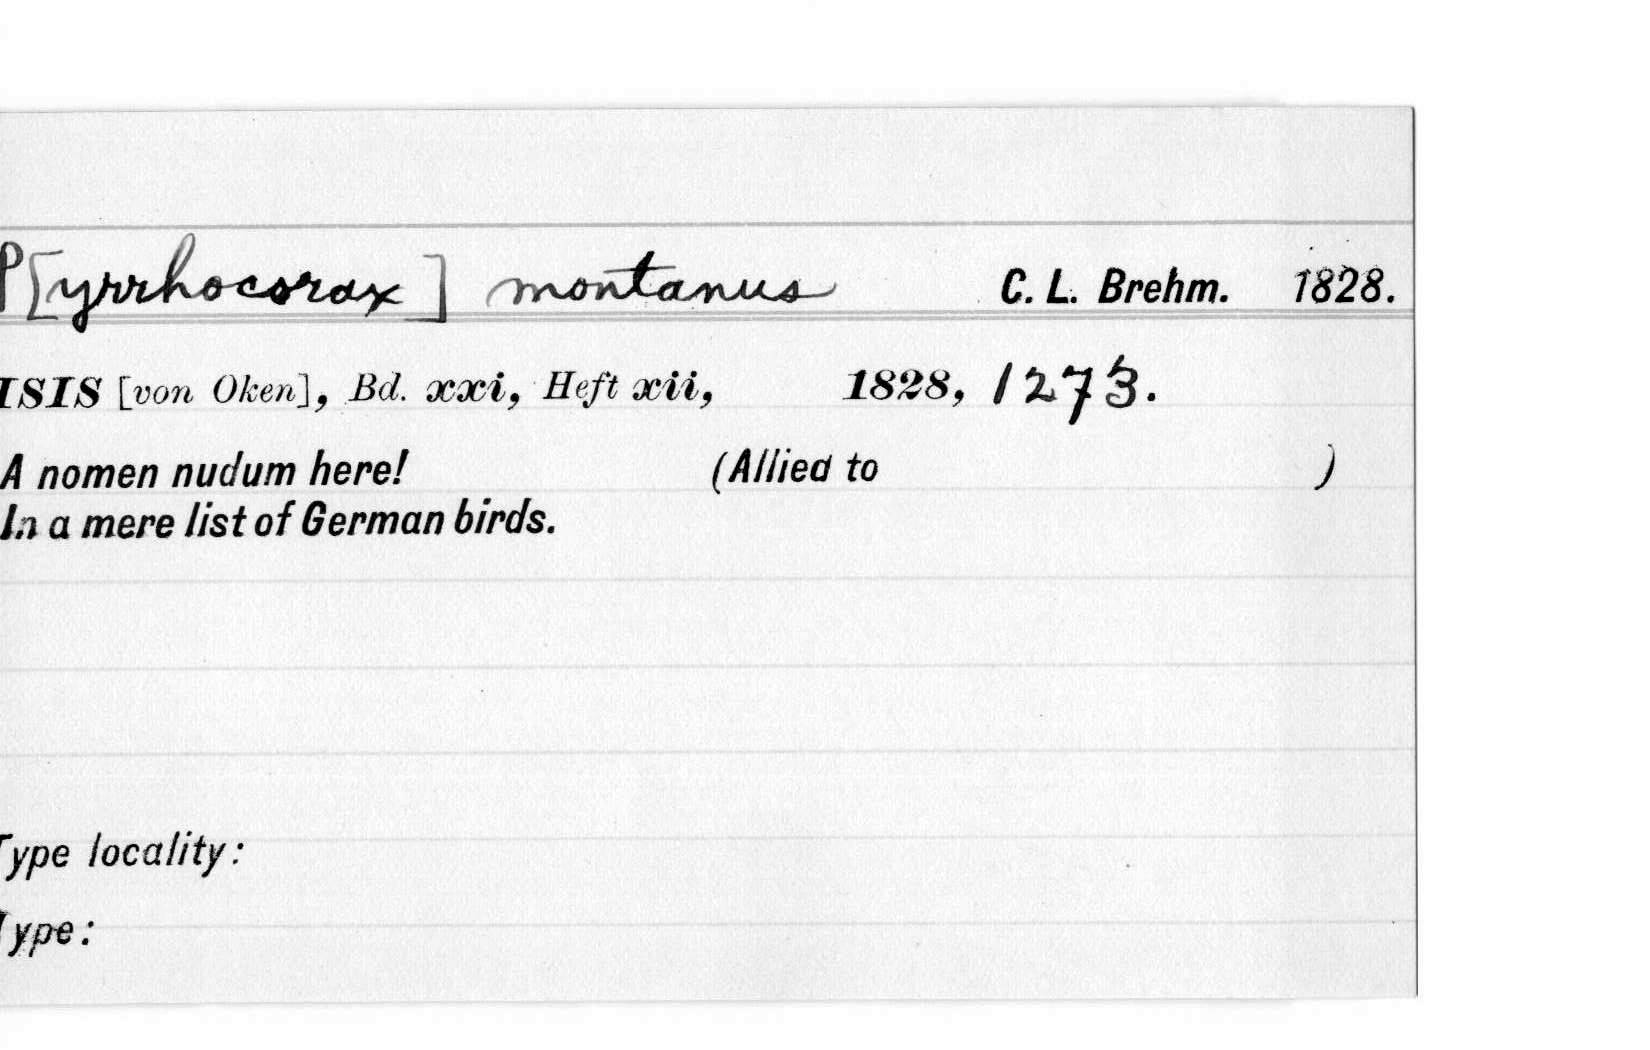 P[yrrhocorax] montanus C. L. Brehm. 1828.
ISIS [von Oken], Bd. xxi, Heft xii, 1828, 1273.
A nomen nudum here! (Allied to )
In a mere list of German birds.
Type locality:
Type: